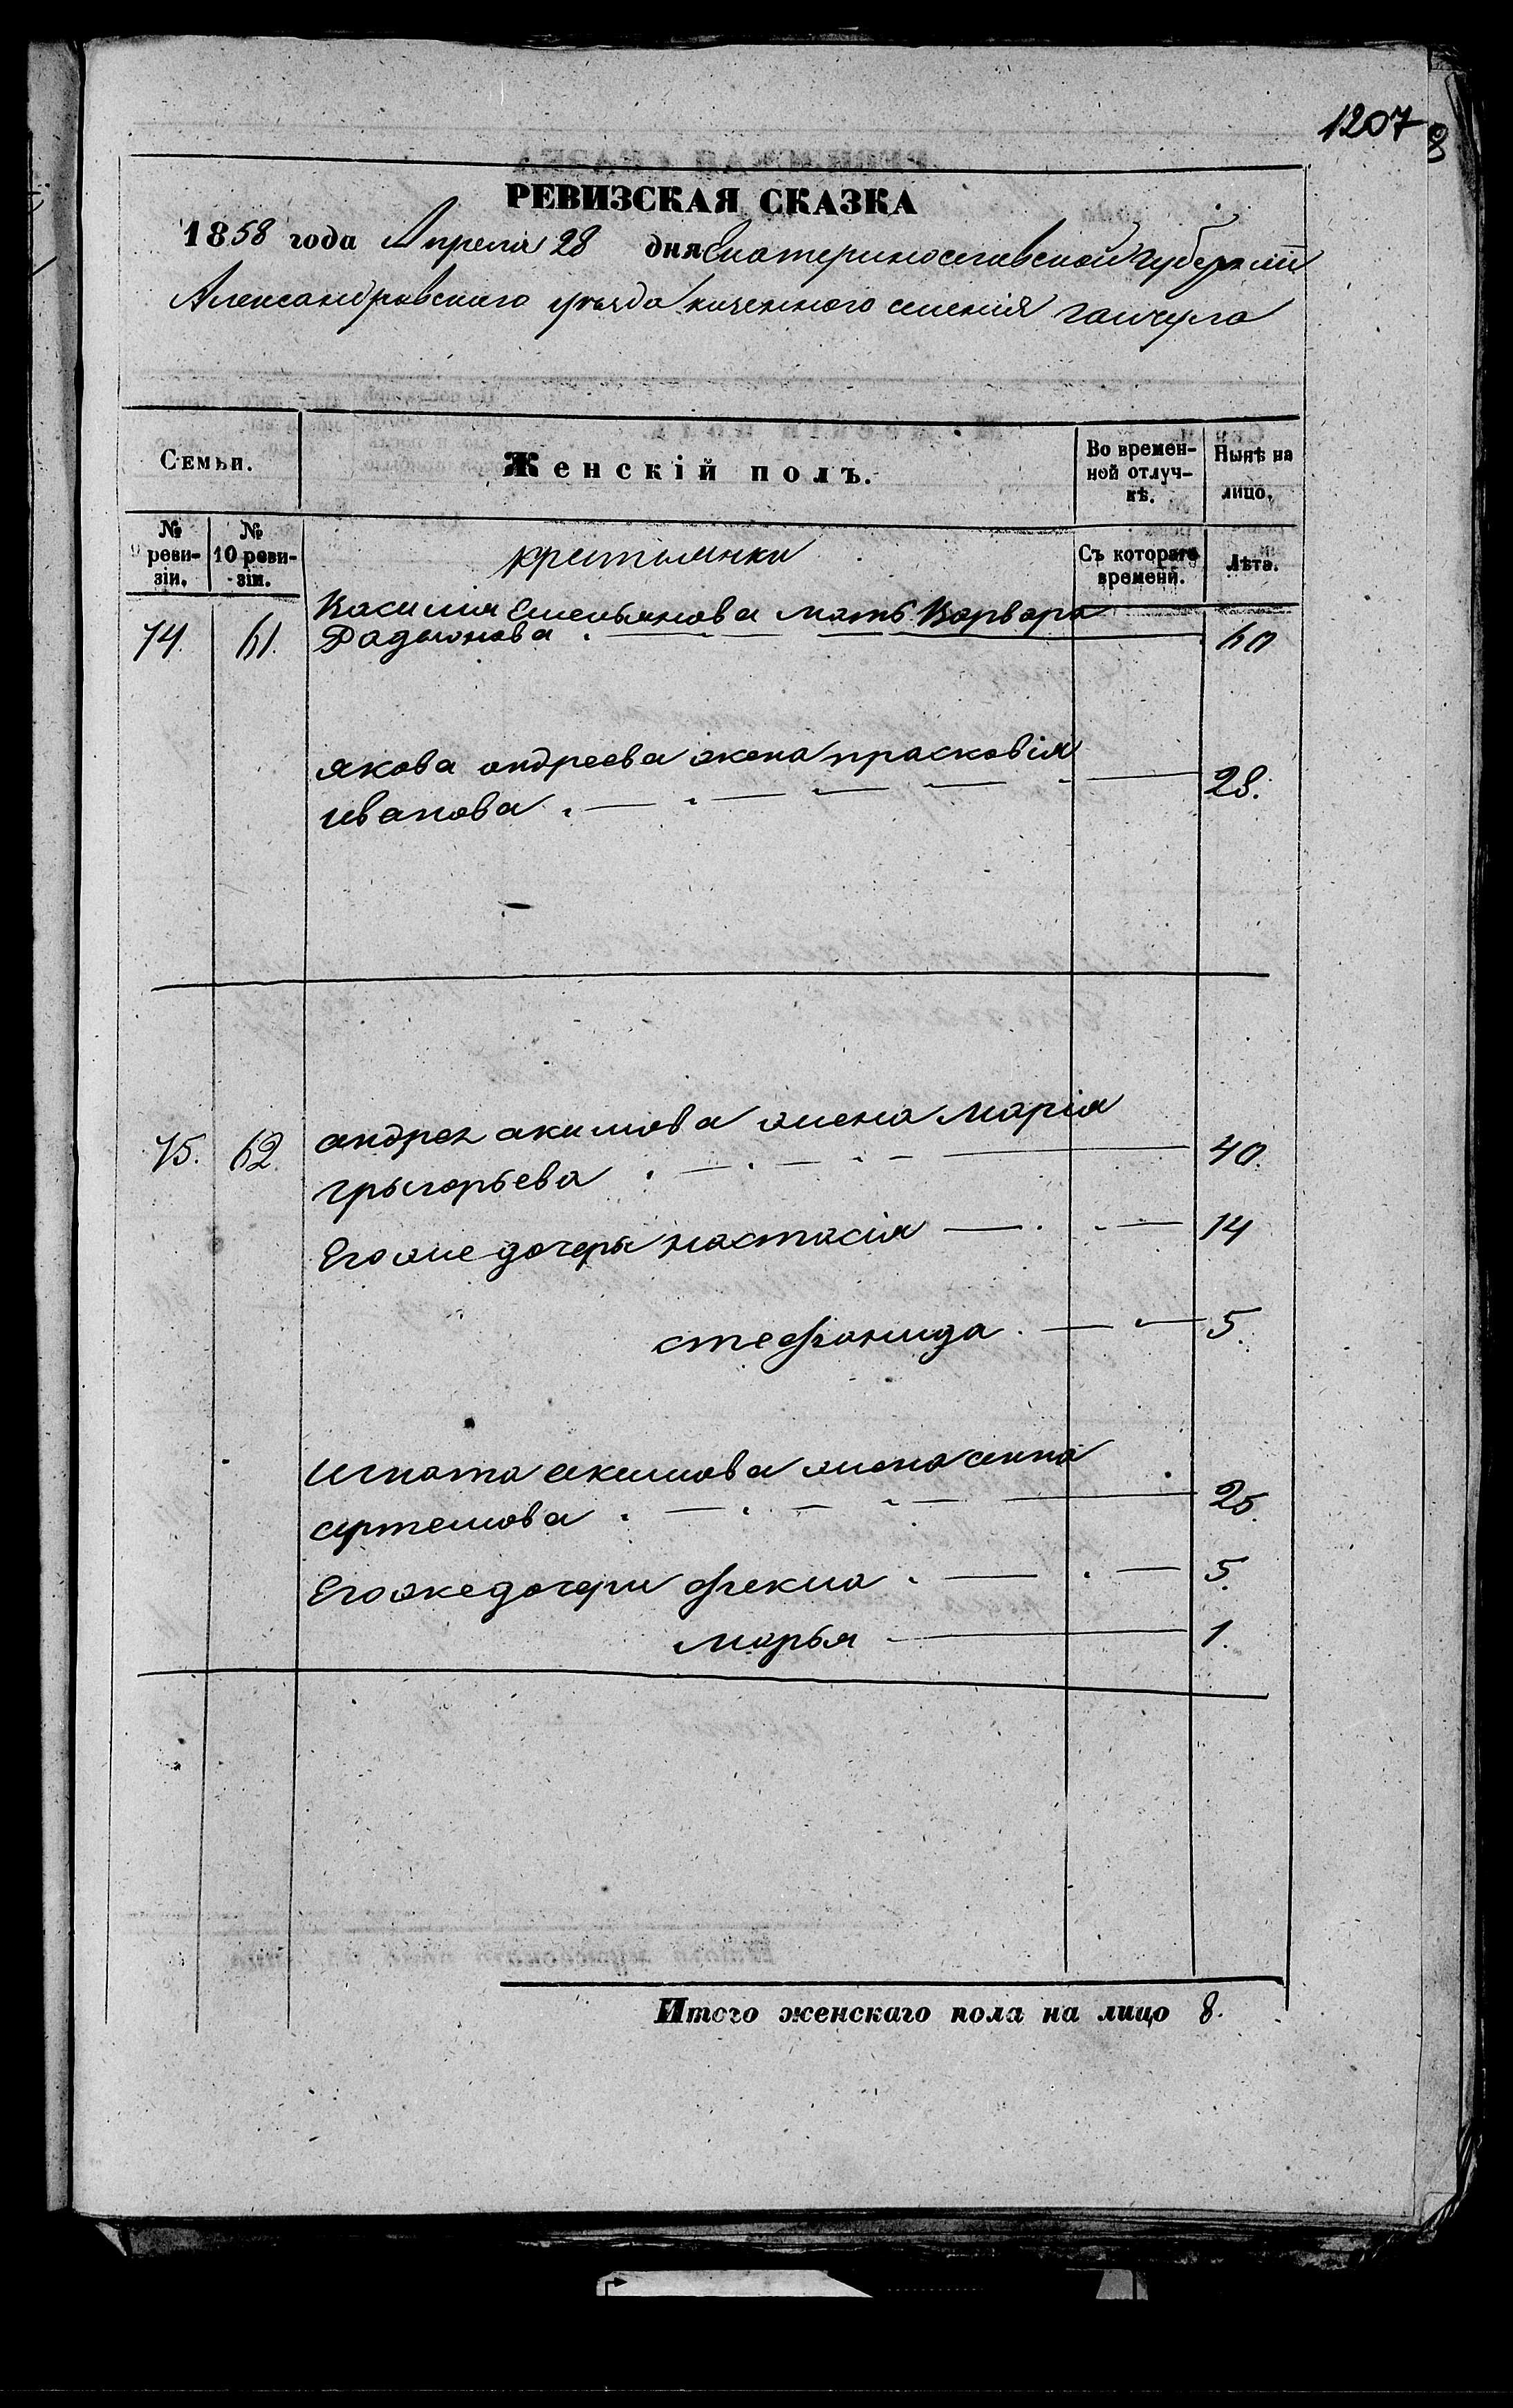 1207
РЕВИЗСКАЯ СКАЗКА
1858 года Апреля 28 дня Екатеринославской Губернии
Александровского уезда казенного селения гайчула
Семьи.
Женскій полъ.
Во времен-
ной отлуч-
кѣ.
Нынѣ на
лицо.
№
9 реви-
зіи.
№
10 реви-
зіи.
крестьянки
Съ котораго
времени.
Лѣта.
74. 61. Василия Емельянова мать Варвара
Радыонова . — — — — 60
якова андреева жена прасковія
иванова . — . — — — — 28.
75. 62. андрея акимова жена Марія
грыгорьева . — . — . — — 40.
Его же дочеря настасія — . . — 14
стефанида . — — 5.
Игната акимова жена анна
артемова . — . — — — 25.
Его же дочери фекла . — . — 5.
марья — 1.
Итого женскаго пола на лицо 8.